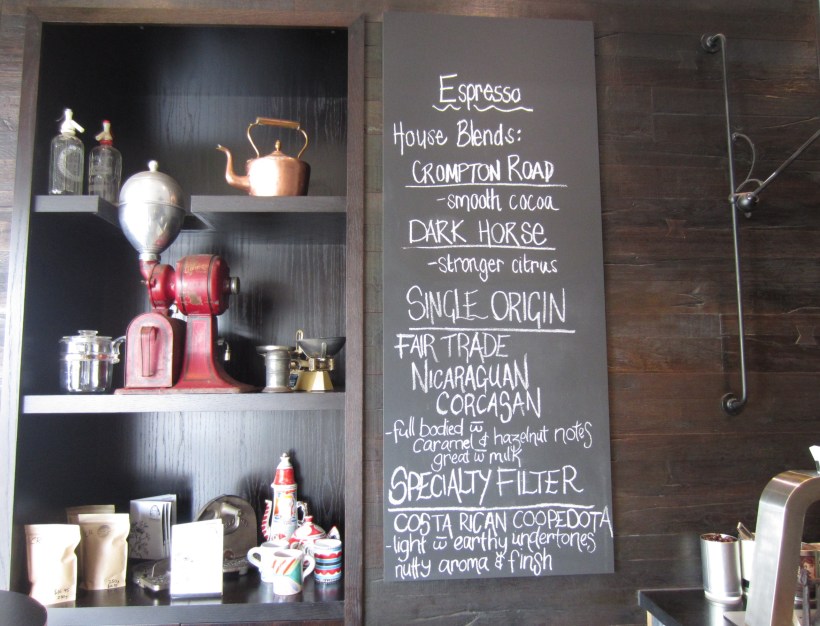 Espresso
House Blends:
CROMPTON ROAD
-smooth cocoa
DARK HORSE
-stronger citrus
SINGLE ORIGIN
FAIR TRADE
NICARAGUAN
CORCASAN
-full bodied w̅
caramel & hazelnut notes
great w̅ milk
SPECIALTY FILTER
COSTA RICAN COOPEDOTA
-light w̅ earthy undertones
nutty aroma & finish